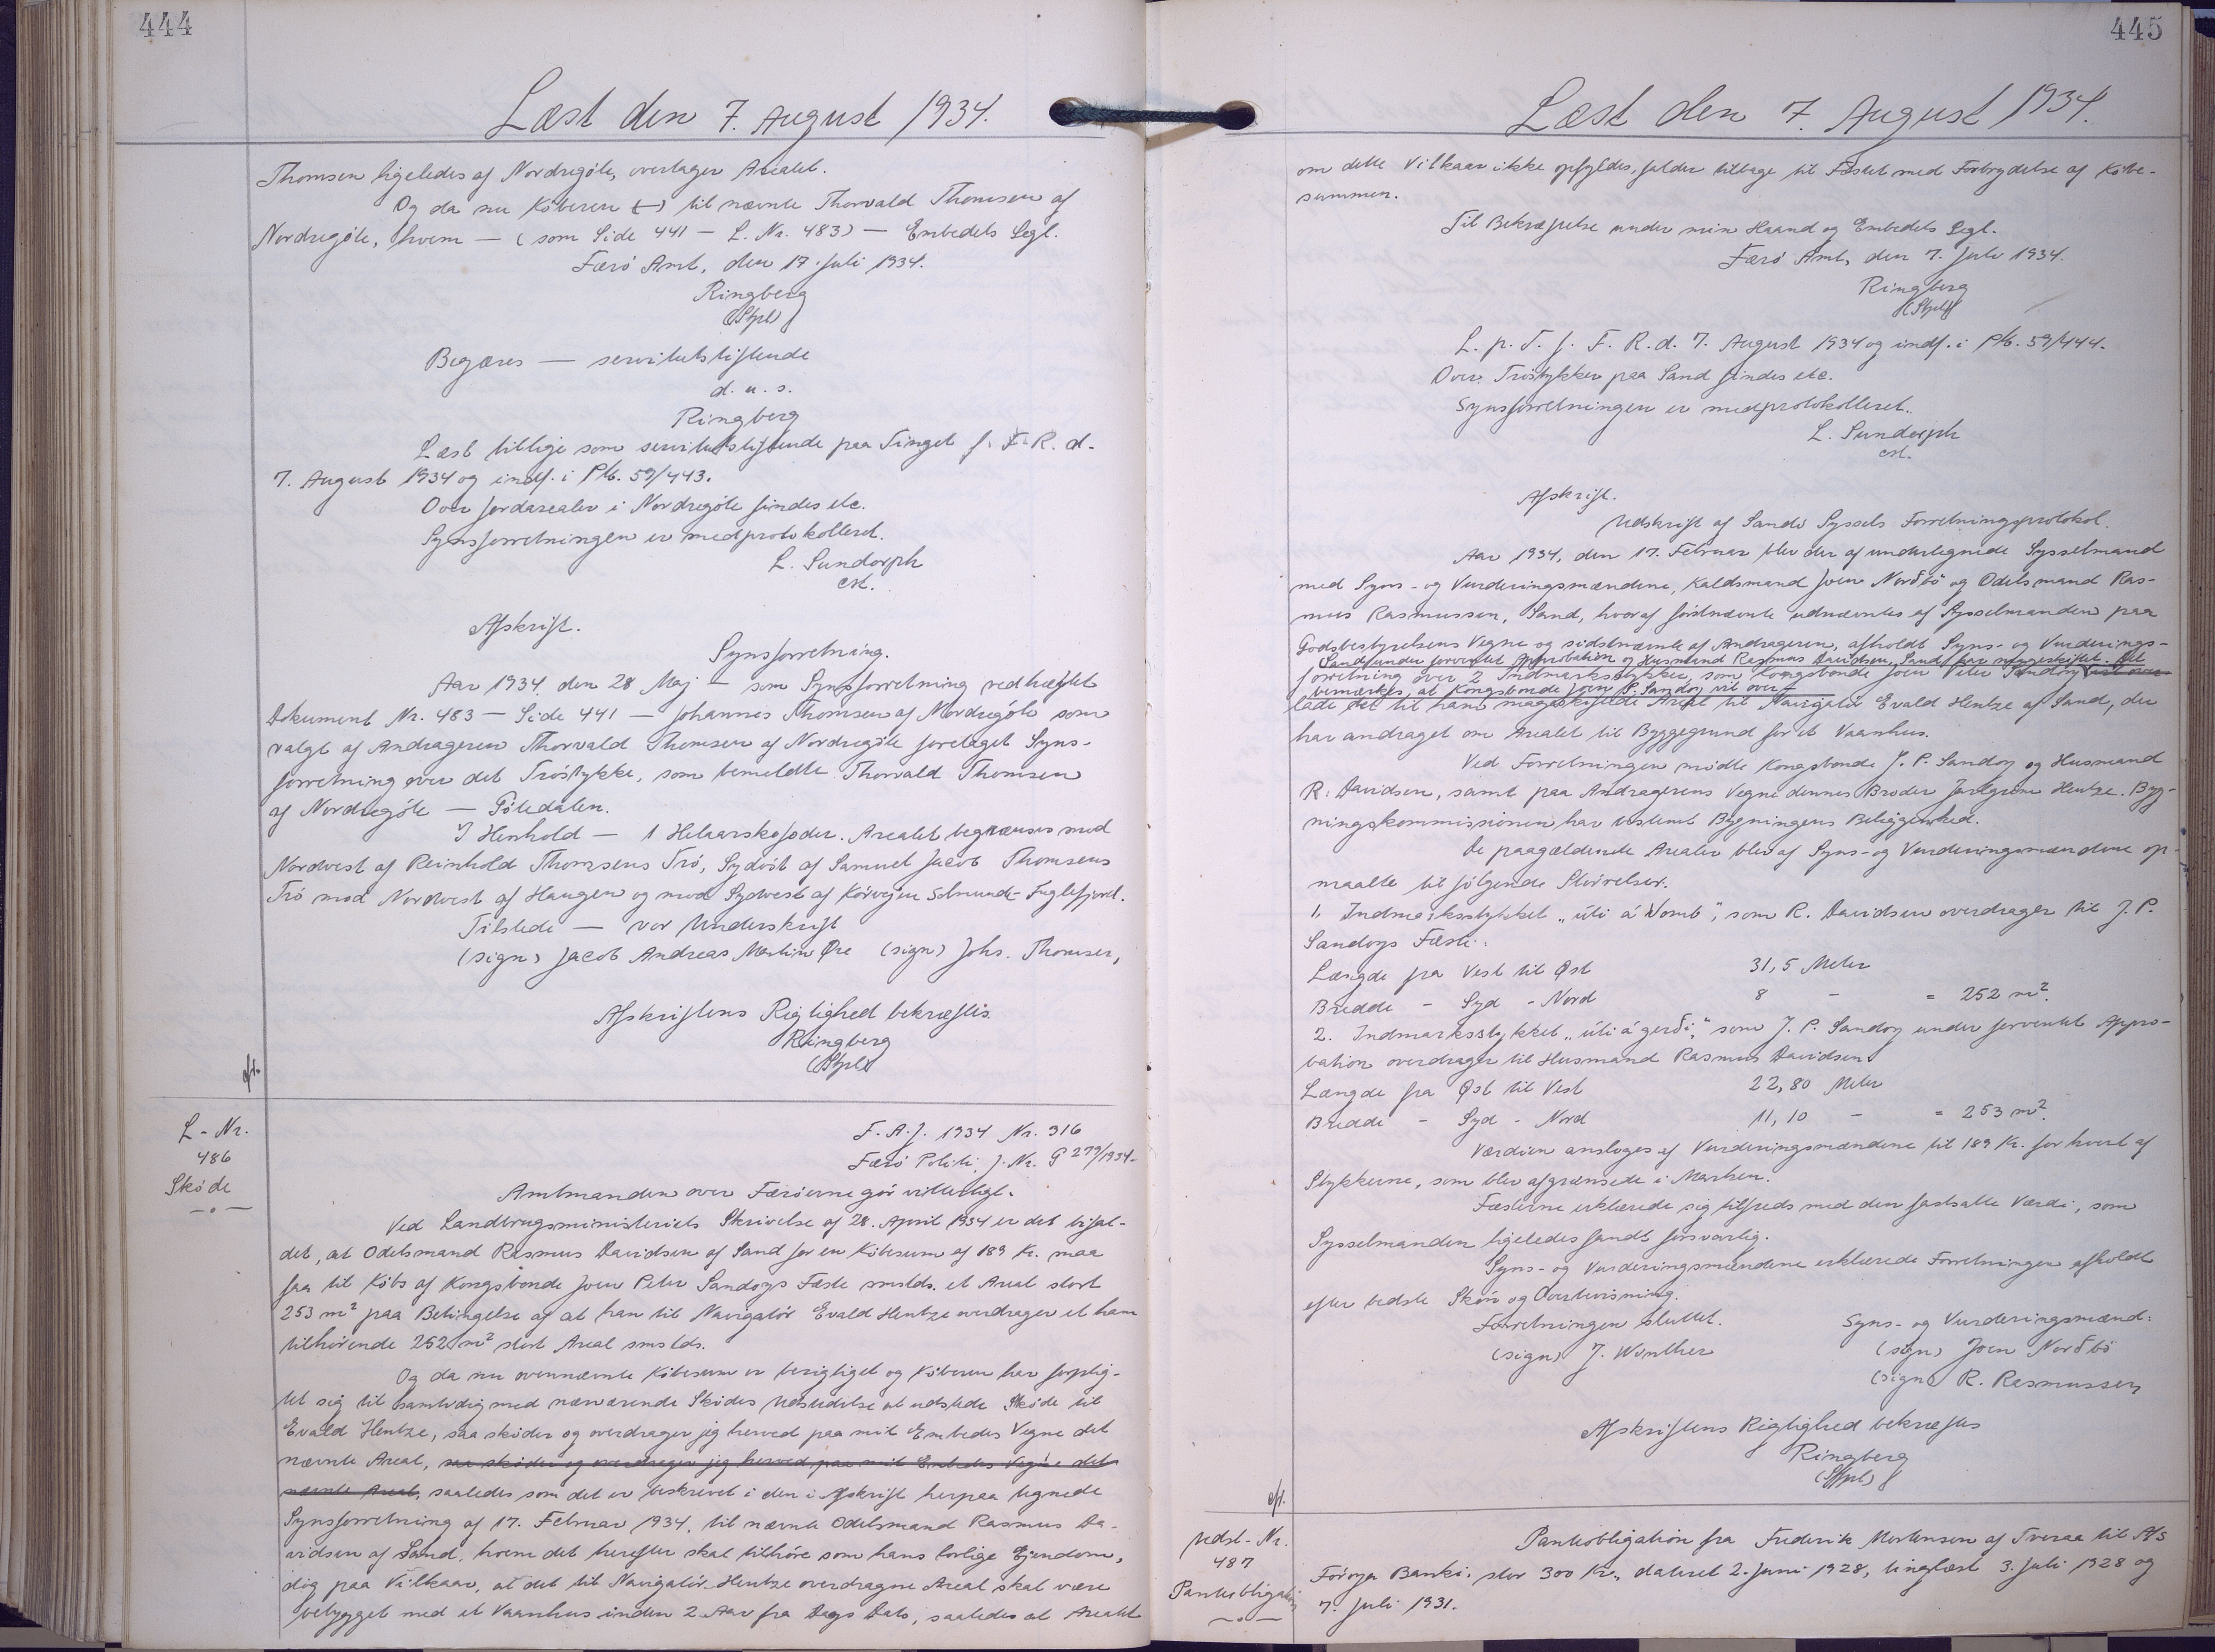 444
Læst den 7. August 1934.
Thomsen ligeledes af Nordregöte, overtager Arealet.
Og da nu Köberen (—) til nævnte Thorvald Thomsen af
Nordregöte, hvem — (som Side 441 — L. Nr. 483) — Embedets Segl.
Færö Amt, den 17. Juli 1934.
Ringberg
(Stpl)
Begæres — servitutstiftende
d. u. s.
Ringberg
Læst tillige som servitutstiftende paa Tinget f. F. R. d.
7. August 1934 og indf. i Ptb. 59/443.
Over Jordarealer i Nordregöte findes etc.
Synsforretningen er medprotokolleret.
L. Sundorph
cst.
Afskrift.
Synsforretning.
Aar 1934, den 28 Maj — som Synsforretning vedhæftet
Dokument Nr. 483 — Side 441 — Johannes Thomsen af Nordregöte som
valgt af Andrageren Thorvald Thomsen af Nordregöte foretaget Syns-
forretning over det Tröstykke, som bemeldte Thorvald Thomsen
af Nordregöte — Götedalen.
I Henhold — 1 Helaarskofoder. Arealet begrænses mod
Nordvest af Reinhold Thomsens Trö, Sydöst af Samuel Jacob Thomsens
Trö mod Nordvest af Haugen og mod Sydvest af Körvejen Selmunde-Fuglefjord.
Tilstede — vor Underskrift
(sign) Jacob Andreas Martin Øre (sign) Johs. Thomsen,
Afskriftens Rigtighed bekræftes.
Ringberg
(Stpl)
ef.
L-Nr.
486
Sköde
F. A. J. 1934 Nr. 316
Færö Politi J. Nr. G 279/1934.
Amtmanden over Færöerne gör vitterligt.
Ved Landbrugsministeriets Skrivelse af 28. April 1934 er det bifal-
det, at Odelsmand Rasmus Davidsen af Sand for en Köbesum af 189 Kr. maa
faa til Köbs af Kongsbonde Joen Peter Sandoys Fæste smstds. et Areal stort
253 m² paa Betingelse af at han til Navigatör Evald Hentze overdrager et ham
tilhörende 252 m² stort Areal smstds.
Og da nu ovennævnte Köbesum er berigtiget og Köberen har forplig-
tet sig til samtidig med nærværende Sködes Udstedelse at udstede Sköde til
Evald Hentze, saa sköder og overdrager jeg herved paa mit Embedes Vegne det
nævnte Areal, saa sköder og overdrager jeg herved paa mit Embedes Vegne det
nævnte Areal, saaledes som det er beskrevet i den i Afskrift herpaa tegnede
Synsforretning af 17. Februar 1934, til nævnte Odelsmand Rasmus Da-
vidsen af Sand, hvem det herefter skal tilhöre som hans lovlige Ejendom,
dog paa Vilkaar, at det til Navigatör Hentze overdragne Areal skal være
bebygget med et Vaanhus inden 2 Aar fra Dags Dato, saaledes at Arealet
445
Læst den 7. August 1934.
om dette Vilkaar ikke opfyldes, falder tilbage til Fæstet med Fortrydelse af Köbe-
summen.
Til Bekræftelse under min Haand og Embedets Segl.
Færö Amt, den 7. Juli 1934.
Ringberg
(Stpl)
L. p. T. f. F. R. d. 7. August 1934 og indf. i Ptb. 59/444.
Over Tröstykker paa Sand findes etc.
Synsforretningen er medprotokolleret.
L. Sundorph
cst.
Afskrift.
Udskrift af Sandö Syssels Forretningsprotokol.
Aar 1934, den 17. Februar blev der af undertegnede Sysselmand
med Syns- og Vurderingsmændene, Kaldsmand Joen Norðbö og Odelsmand Ras-
mus Rasmussen, Sand, hvoraf förstnævnte udnævntes af Sysselmanden paa
Godsbestyrelsens Vegne og sidstnævnte af Andrageren, afholdt Syns- og Vurderings-
Sand under forventet Approbation og Husmand Rasmus Davidsen, Sand har mageskiftet. Det
forretning over 2 Indmarksstykker, som Kongsbonde Joen Peter Sandoy vil over-
bemærkes, at Kongsbonde Joen P. Sandoy vil over-
lade det til ham mageskiftede Areal til Navigatör Evald Hentze af Sand, der
har andraget om Arealet til Byggegrund for et Vaanhus.
Ved Forretningen mödte Kongsbonde J. P. Sandoy og Husmand
R. Davidsen, samt paa Andragerens Vegne dennes Broder Jortgrim Hentze. Byg-
ningskommissionen har bestemt Bygningens Beliggenhed.
De paagældende Arealer blev af Syns- og Vurderingsmændene op-
maalte til fölgende Störrelser.
1. Indmarksstykket „úti á Vomb", som R. Davidsen overdrager til J. P.
Sandoys Fæste:
Længde fra Vest til Øst 31,5 Meter
Bredde - Syd - Nord 8 - = 252 m².
2. Indmarksstykket „úti á gerði", som J. P. Sandoy under forventet Appro-
bation overdrager til Husmand Rasmus Davidsen.
Længde fra Øst til Vest 22,80 Meter
Bredde - Syd - Nord 11,10 - = 253 m².
Værdien ansloges af Vurderingsmændene til 189 Kr. for hvert af
Stykkerne, som blev afgrænsede i Marken.
Fæsterne erklærede sig tilfreds med den fastsatte Værdi, som
Sysselmanden ligeledes fandt forsvarlig.
Syns- og Vurderingsmændene erklærede Forretningen afholdt
efter bedste Skön og Overbevisning.
Forretningen sluttet. Syns- og Vurderingsmænd:
(sign) J. Winther (sign) Joen Norðbö
(sign) R. Rasmussen
Afskriftens Rigtighed bekræftes
Ringberg
(Stpl)
ef.
Udsl-Nr.
487
Panteobligation
Panteobligation fra Frederik Mortensen af Tveraa til A/S
Föroya Banki, stor 300 Kr., dateret 2. Juni 1928, tinglæst 3. Juli 1928 og
7. Juli 1931.